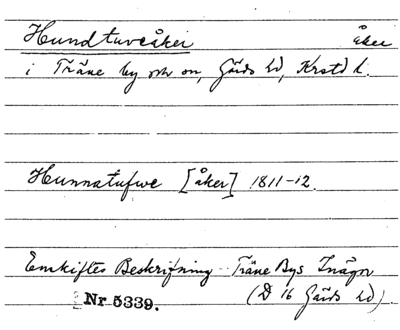 Hundtuveåker åker
i Träne by och sn, Gärds hd, Krstd l.
Hunnatufwe [åker] 1811-12.
Emkiftes Beskrifning Träne Bys Inägor
Nr 5339. (D 16 Gärds hd)